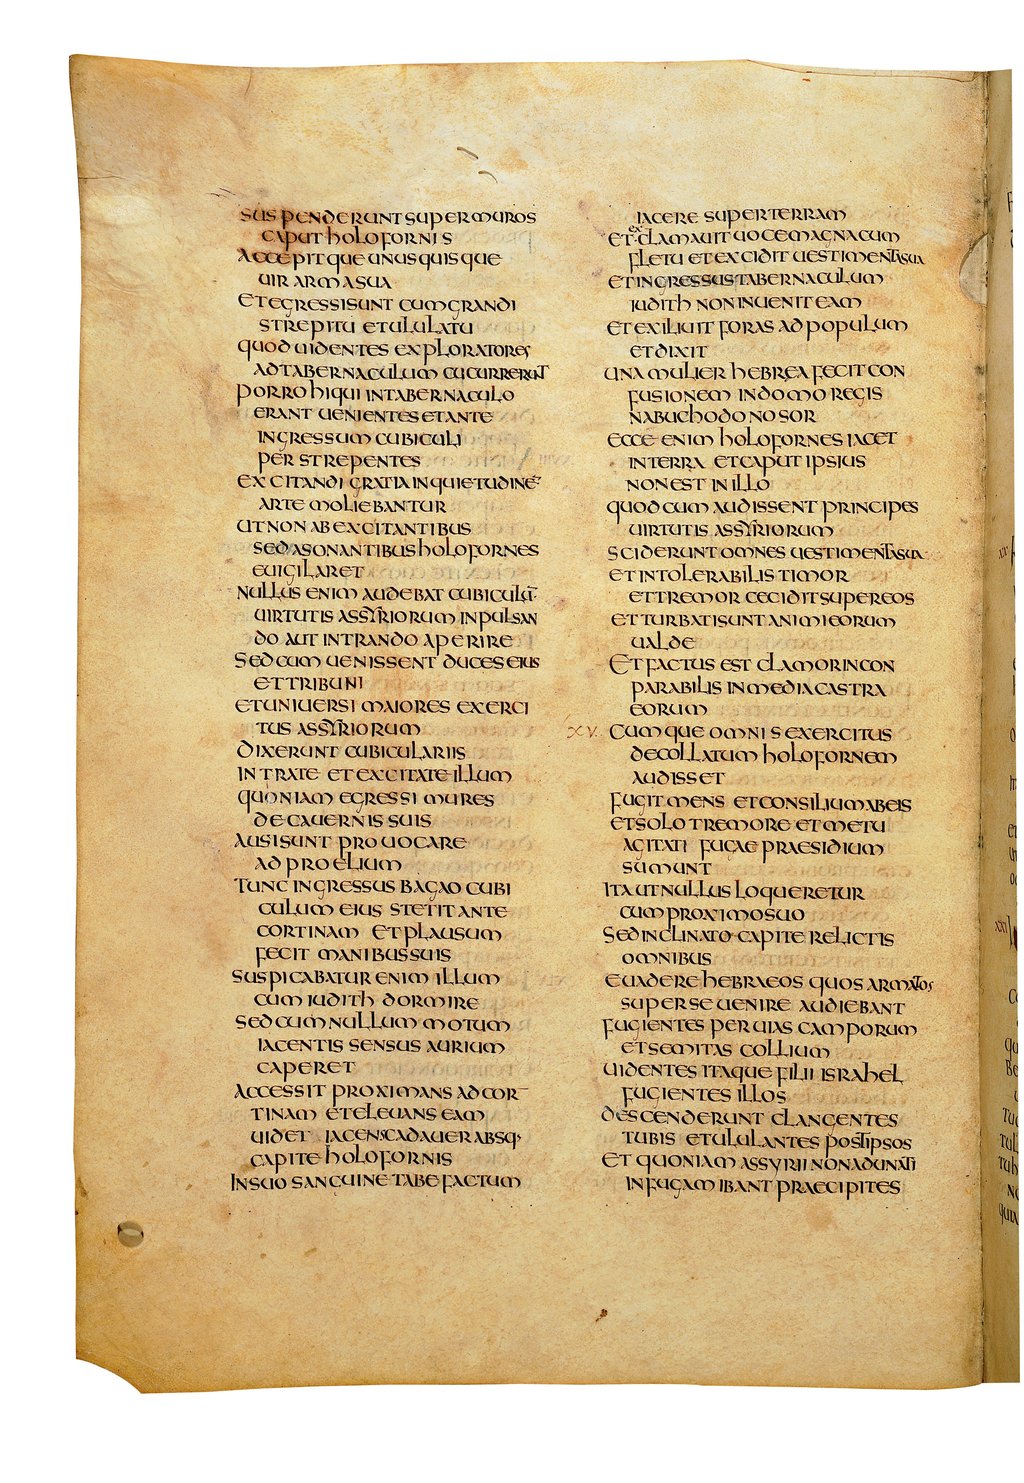 SUSPENDERUNT SUPER MUROS
CAPUT HOLOFORNIS
ACCEPITQUE UNUSQUISQUE
UIR ARMA SUA
ET EGRESSI SUNT CUM GRANDI
STREPITU ET ULULATU
QUOD UIDENTES EXPLORATORES
AD TABERNACULUM CUCURRERUNT
PORRO HI QUI IN TABERNACULO
ERANT UENIENTES ET ANTE
INGRESSUM CUBICULI
PERSTREPENTES
EXCITANDI GRATIA INQUIETUDINE
ARTE MOLIEBANTUR
UT NON AB EXCITANTIBUS
SED A SONANTIBUS HOLOFORNES
EUIGILARET
NULLUS ENIM AUDEBAT CUBICULŪ
UIRTUTIS ASSYRIORUM INPULSAN
DO AUT INTRANDO APERIRE
SED CUM UENISSENT DUCES EIUS
ET TRIBUNI
ET UNIUERSI MAIORES EXERCI
TUS ASSYRIORUM
DIXERUNT CUBICULARIIS
INTRATE ET EXCITATE ILLUM
QUONIAM EGRESSI MURES
DE CAUERNIS SUIS
AUSI SUNT PROUOCARE
AD PROELIUM
TUNC INGRESSUS BAGAO CUBI
CULUM EIUS STETIT ANTE
CORTINAM ET PLAUSUM
FECIT MANIBUS SUIS
SUSPICABATUR ENIM ILLUM
CUM IUDITH DORMIRE
SED CUM NULLUM MOTUM
IACENTIS SENSUS AURIUM
CAPERET
ACCESSIT PROXIMANS AD COR
TINAM ET ELEUANS EAM
UIDET IACENS CADAUER ABSQ,
CAPITE HOLOFORNIS
IN SUO SANGUINE TABEFACTUM
IACERE SUPER TERRAM
ET EXCLAMAUIT UOCE MAGNA CUM
FLETU ET EXCIDIT UESTIMENTA SUA
ET INGRESSUS TABERNACULUM
IUDITH NON INUENIT EAM
ET EXILIUIT FORAS AD POPULUM
ET DIXIT
UNA MULIER HEBREA FECIT CON
FUSIONEM IN DOMO REGIS
NABUCHODONOSOR
ECCE ENIM HOLOFORNES IACET
IN TERRA ET CAPUT IPSIUS
NON EST IN ILLO
QUOD CUM AUDISSENT PRINCIPES
UIRTUTIS ASSYRIORUM
SCIDERUNT OMNES UESTIMENTA SUA
ET INTOLERABILIS TIMOR
ET TREMOR CECIDIT SUPER EOS
ET TURBATI SUNT ANIMI EORUM
UALDE
ET FACTUS EST CLAMOR INCON
PARABILIS IN MEDIA CASTRA
EORUM
XV. CUMQUE OMNIS EXERCITUS
DECOLLATUM HOLOFORNEM
AUDISSET
FUGIT MENS ET CONSILIUM AB EIS
ET SOLO TREMORE ET METU
AGITATI FUGAE PRAESIDIUM
SUMUNT
ITA UT NULLUS LOQUERETUR
CUM PROXIMO SUO
SED INCLINATO CAPITE RELICTIS
OMNIBUS
EUADERE HEBRAEOS QUOS ARMATOS
SUPER SE UENIRE AUDIEBANT
FUGIENTES PER UIAS CAMPORUM
ET SEMITAS COLLIUM
UIDENTES ITAQUE FILII ISRAHEL
FUGIENTES ILLOS
DESCENDERUNT CLANGENTES
TUBIS ET ULULANTES POST IPSOS
ET QUONIAM ASSYRII NON ADUNATI
IN FUGAM IBANT PRAECIPITES